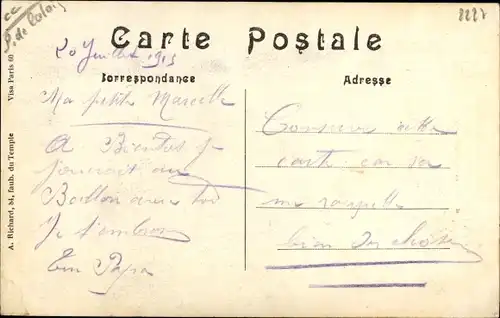 8227
Carte Postale
20 Juillet 1915
Correspondance
Adresse
Ma petite Marcelle
A Bientôt je
jouerait au
Ballon avec toi
Je t'embrasse
Ton Papa
Conserve cette
carte car sa
me rappelle
bien des choses
A. Richard, 84, faub. du Temple Visa Paris 60